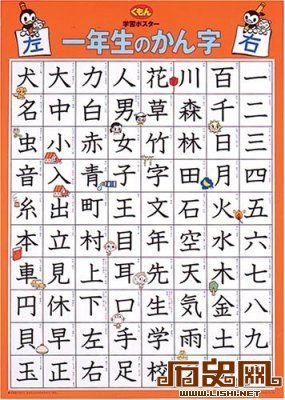 くもん
学習ポスター
左
一年生のかん字
右
一二三四五六七八九
百千日月火水木金土
川森林田石空天気雨
花草竹字文年先生学校
人男女子王目耳口手足
力白赤青町村上下左右
大中小入出立見休早正
犬名虫音糸本車円貝玉
历史网
WWW.LISHI.NET